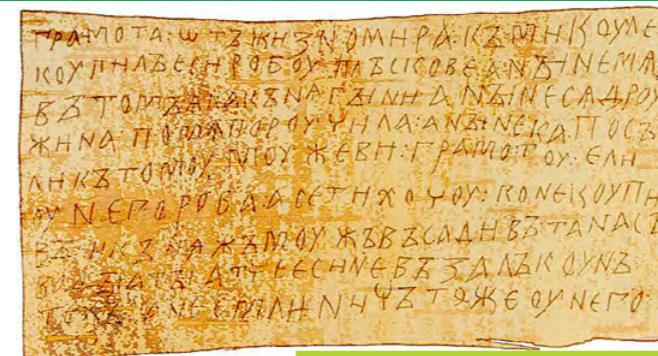 ГРАМОТА : ѠТЪ ЖИЗНОМИРА : КЪ МИКОУЛЕ
КОУПИЛЪ ЕСИ РОБОУ ПЛЪСКОВЕ А НЫНЕ МѦ
ВЪ ТОМЪ ѦЛА КЪНѦГЫНИ А НЫНЕ СѦ ДРОУ
ЖИНА ПО МѦ ПОРОУЧИЛА : А НЫНЕ КА : ПОСЪ
ЛИ КЪ ТОМОУ МОУЖЕВИ : ГРАМОТОУ : ЕЛИ
ОУ НЕГО РОБА : А СЕ ТИ ХОЧОУ : КОНЕ КОУПИ
ВЪ И КЪНѦЖЪ МОУЖЪ ВЪСАДИВЪ ТА НА СЪ
ВОДЫ А ТЫ АТЧЕ ЕСИ НЕ ВЪЗАЛЪ КОУНЪ
ТЕХЪ А НЕ ЕМЛИ НИЧЪТОЖЕ ОУ НЕГО :